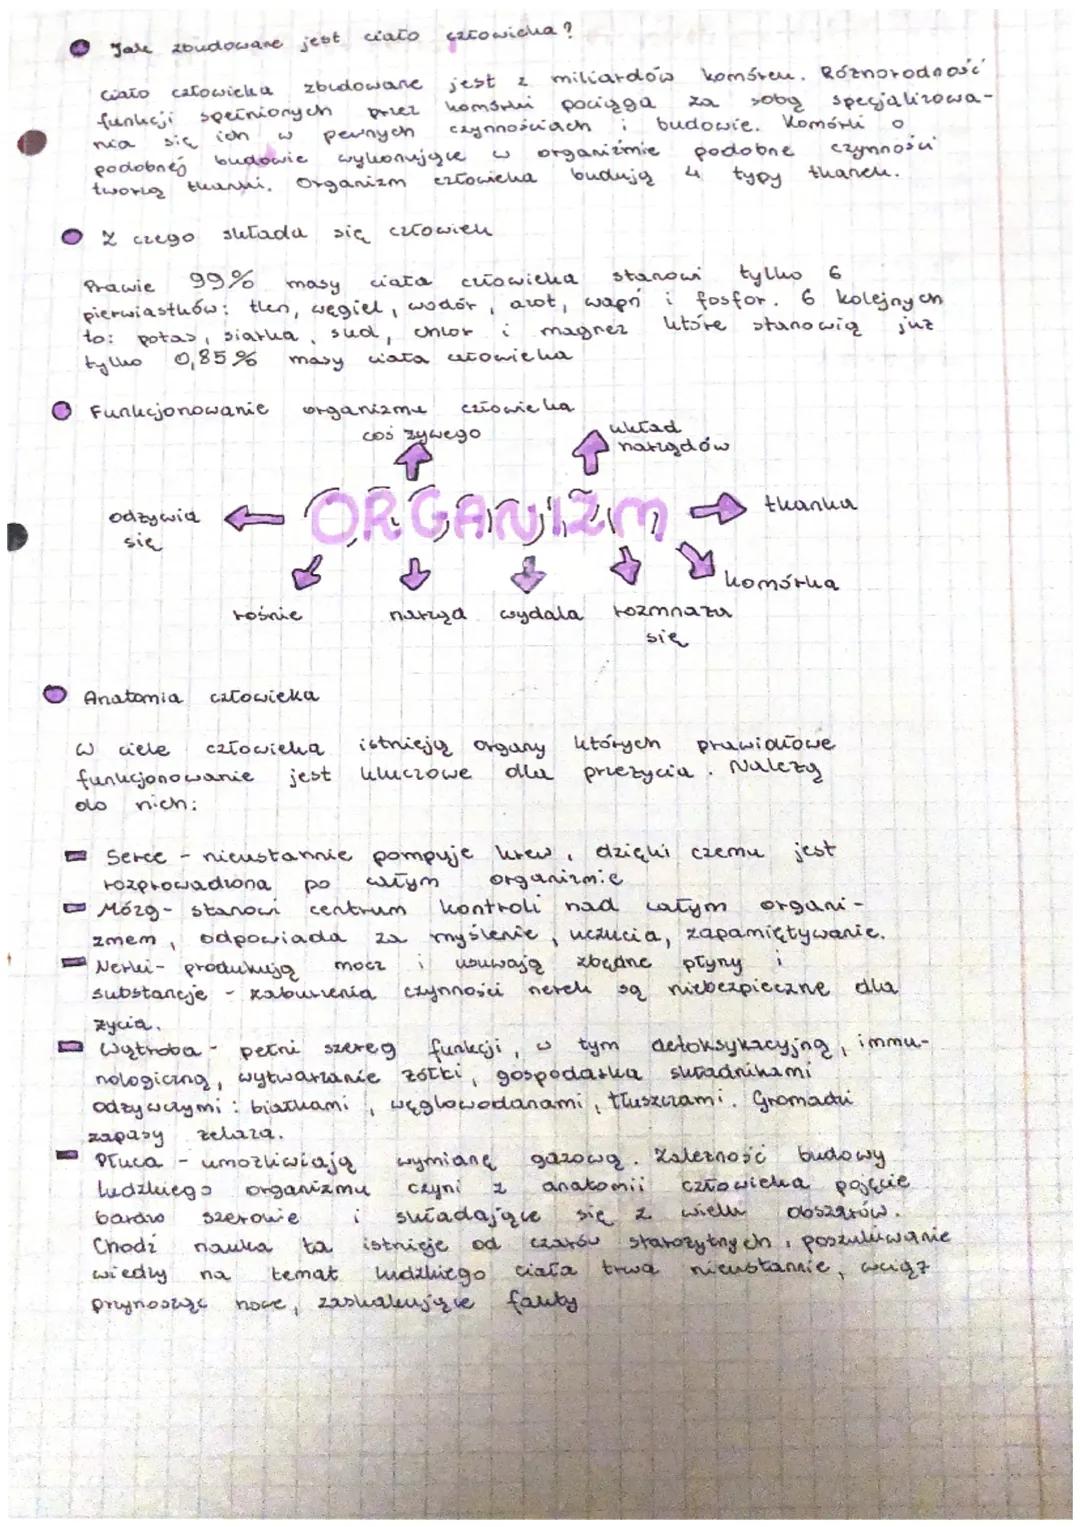 Jak zbudowane jest ciało człowieka?
ciało człowieka zbudowane jest z miliardów komórek. Różnorodność
funkcji spełnionych przez komórki pociąga za sobą specjalizowa-
nia się ich w pewnych czynnościach i budowie. Komórki o
podobnej budowie wykonujące w organizmie podobne czynności
tworzą tkanki. Organizm człowieka budują 4 typy tkanek.
Z czego składa się człowiek
Prawie 99% masy ciała człowieka stanowi tylko 6
pierwiastków: tlen, węgiel, wodór, azot, wapń i fosfor. 6 kolejnych
to: potas, siarka, sud, chlor i magnez które stanowią już
tylko 0,85% masy ciała człowieka
Funkcjonowanie organizmu człowieka
coś żywego
układ
narządów
odżywia
się
ORGANIZM
tkanka
komórka
rośnie
narząd
wydala
rozmnaża
się
Anatomia człowieka
W ciele człowieka istnieją organy których prawidłowe
funkcjonowanie jest kluczowe dla przeżycia. Należą
do nich:
Serce - nieustannie pompuje krew, dzięki czemu jest
rozprowadzona po całym organizmie
Mózg - stanowi centrum kontroli nad całym organi-
zmem, odpowiada za myślenie, uczucia, zapamiętywanie.
Nerki - produkują mocz i usuwają zbędne płyny i
substancje - zaburzenia czynności nerek są niebezpieczne dla
życia.
Wątroba - pełni szereg funkcji, w tym detoksykacyjną, immu-
nologiczną, wytwarzanie żółci, gospodarka składnikami
odżywczymi: białkami, węglowodanami, tłuszczami. Gromadzi
zapasy żelaza.
Płuca - umożliwiają wymianę gazową. Zależność budowy
ludzkiego organizmu czyni z anatomii człowieka pojęcie
bardzo szerokie i składające się z wielu obszarów.
Chodź nauka ta istnieje od czasów starożytnych, poszukiwanie
wiedzy na temat ludzkiego ciała trwa nieustannie, wciąż
przynosząc nowe, zaskakujące fakty